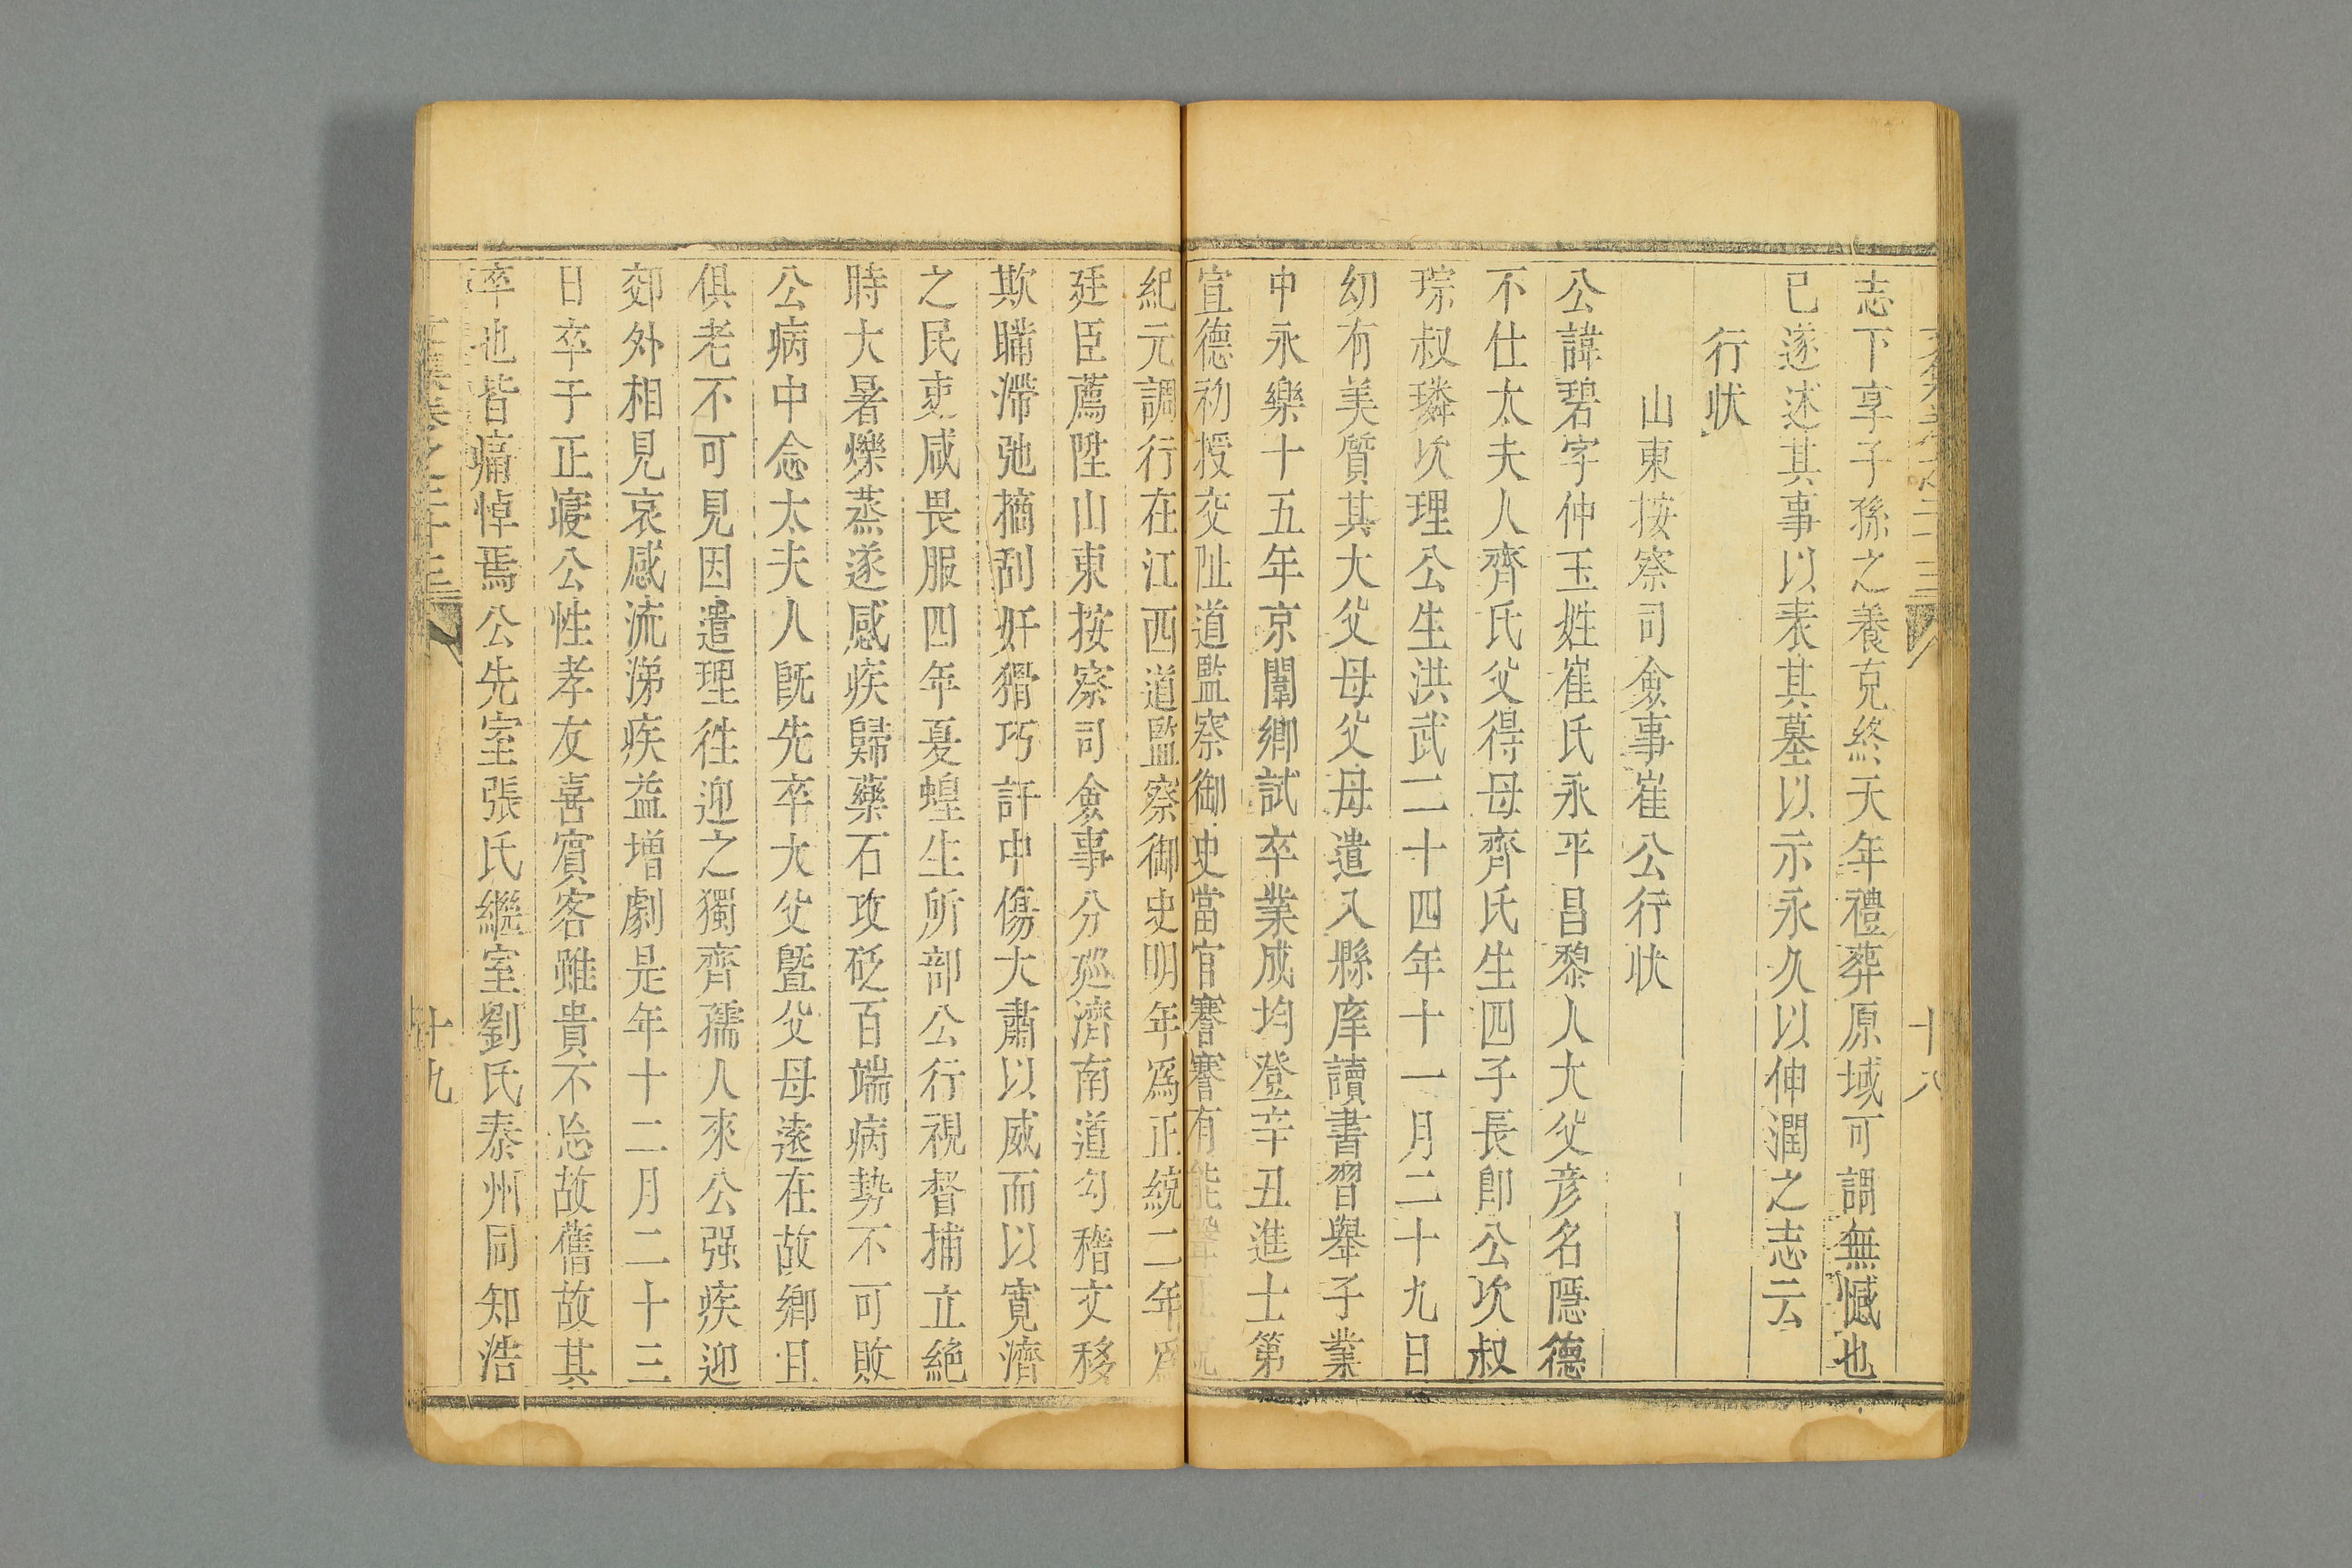 志下享子孫之養克終天年禮葬原域可謂無憾也
已遂述其事以表其墓以示永久以伸潤之志云
行狀
山東按察司僉事崔公行狀
公諱碧字仲玉姓崔氏永平昌黎人大父彦名隱德
不仕太夫人齊氏父得母齊氏生四子長卽公次叔
琮叔璘次理公生洪武二十四年十一月二十九日
幼有美質其大父母父母遣入縣庠讀書習舉子業
中永樂十五年京闈鄉試卒業成均登辛丑進士第
宣德初授交阯道監察御史當官謇謇有能聲
紀元調行在江西道監察御史明年爲正統二年爲
廷臣薦陞山東按察司僉事分廵濟南道勾稽文移
欺瞞滯弛摘刮奸猾巧訐中傷大肅以威而以寛濟
之民吏咸畏服四年憂蝗生所部公行視督捕立絶
時大暑爍蒸遂感疾歸藥石攻砭百端病勢不可敗
公病中念太夫人既先卒大父曁父母遠在故鄉且
俱老不可見因遣理徃迎之獨齊孺人來公强疾迎
郊外相見哀感流涕疾益增劇是年十二月二十三
日卒于正寢公性孝友喜賓客雖貴不忘故舊故其
卒也皆痛悼焉公先室張氏繼室劉氏泰州同知浩
十九